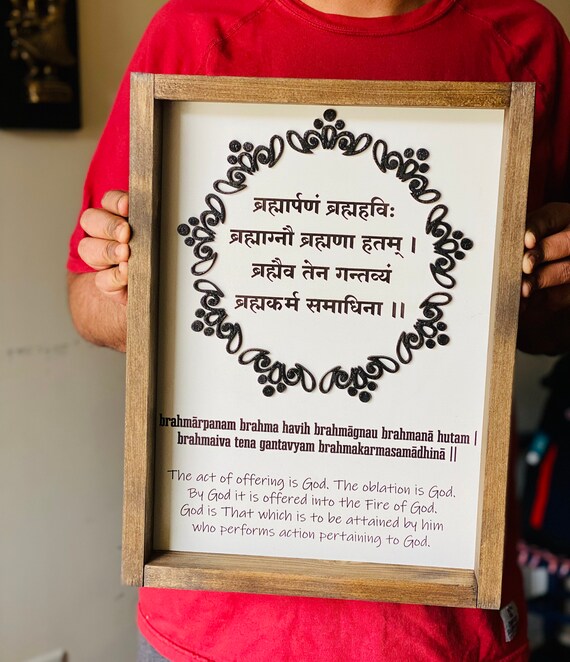 ब्रह्मार्पणं ब्रह्महविः
ब्रह्माग्नौ ब्रह्मणा हतम् ।
ब्रह्मैव तेन गन्तव्यं
ब्रह्मकर्म समाधिना ।।
brahmārpanam brahma havih brahmāgnau brahmanā hutam |
brahmaiva tena gantavyam brahmakarmasamādhinā ||
The act of offering is God. The oblation is God.
By God it is offered into the Fire of God.
God is That which is to be attained by him
who performs action pertaining to God.